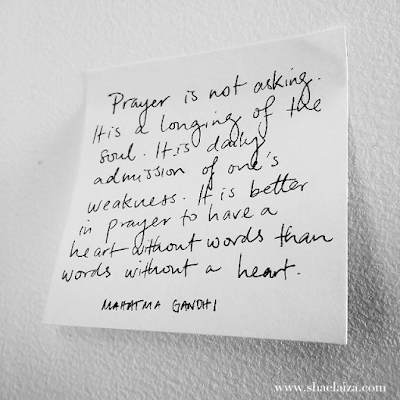 Prayer is not asking.
It is a longing of the
soul. It is daily
admission of one's
weakness. It is better
in prayer to have a
heart without words than
words without a heart.
MAHATMA GANDHI
www.shaelaiza.com